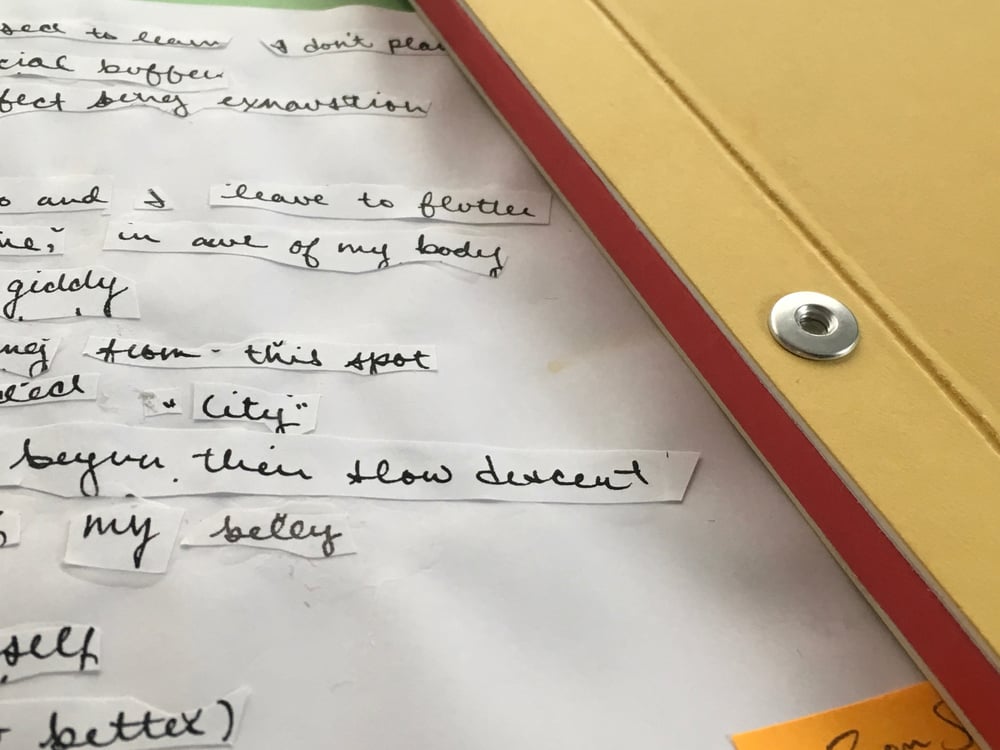 sed to learn I don't plan
cial buffer
fect being exhaustion
o and I leave to flutter
in awe of my body
giddy
from - this spot
"City"
begun. then slow descent
my belley
self
better)